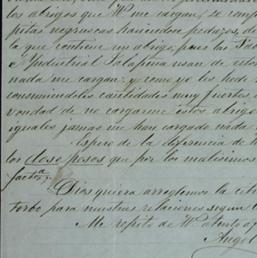 los abrigos que V me cargan, se comp
petas negruscas haciendose pedazos, de
la que contiene un abrigo, pues las Fac
e Industrial Jalapeña usan de esto
nada me cargan; y como yo les he de
cantidades muy fuertes
vondad de no cargarme estos abrigo
iguales jamas me han cargado nada
Espero de la diferencia de
los doce pesos que por los malisimos
factura
Dios quiera arreglemos la
para nuestras relaciones segun
Me repito de V. atento a
Angel